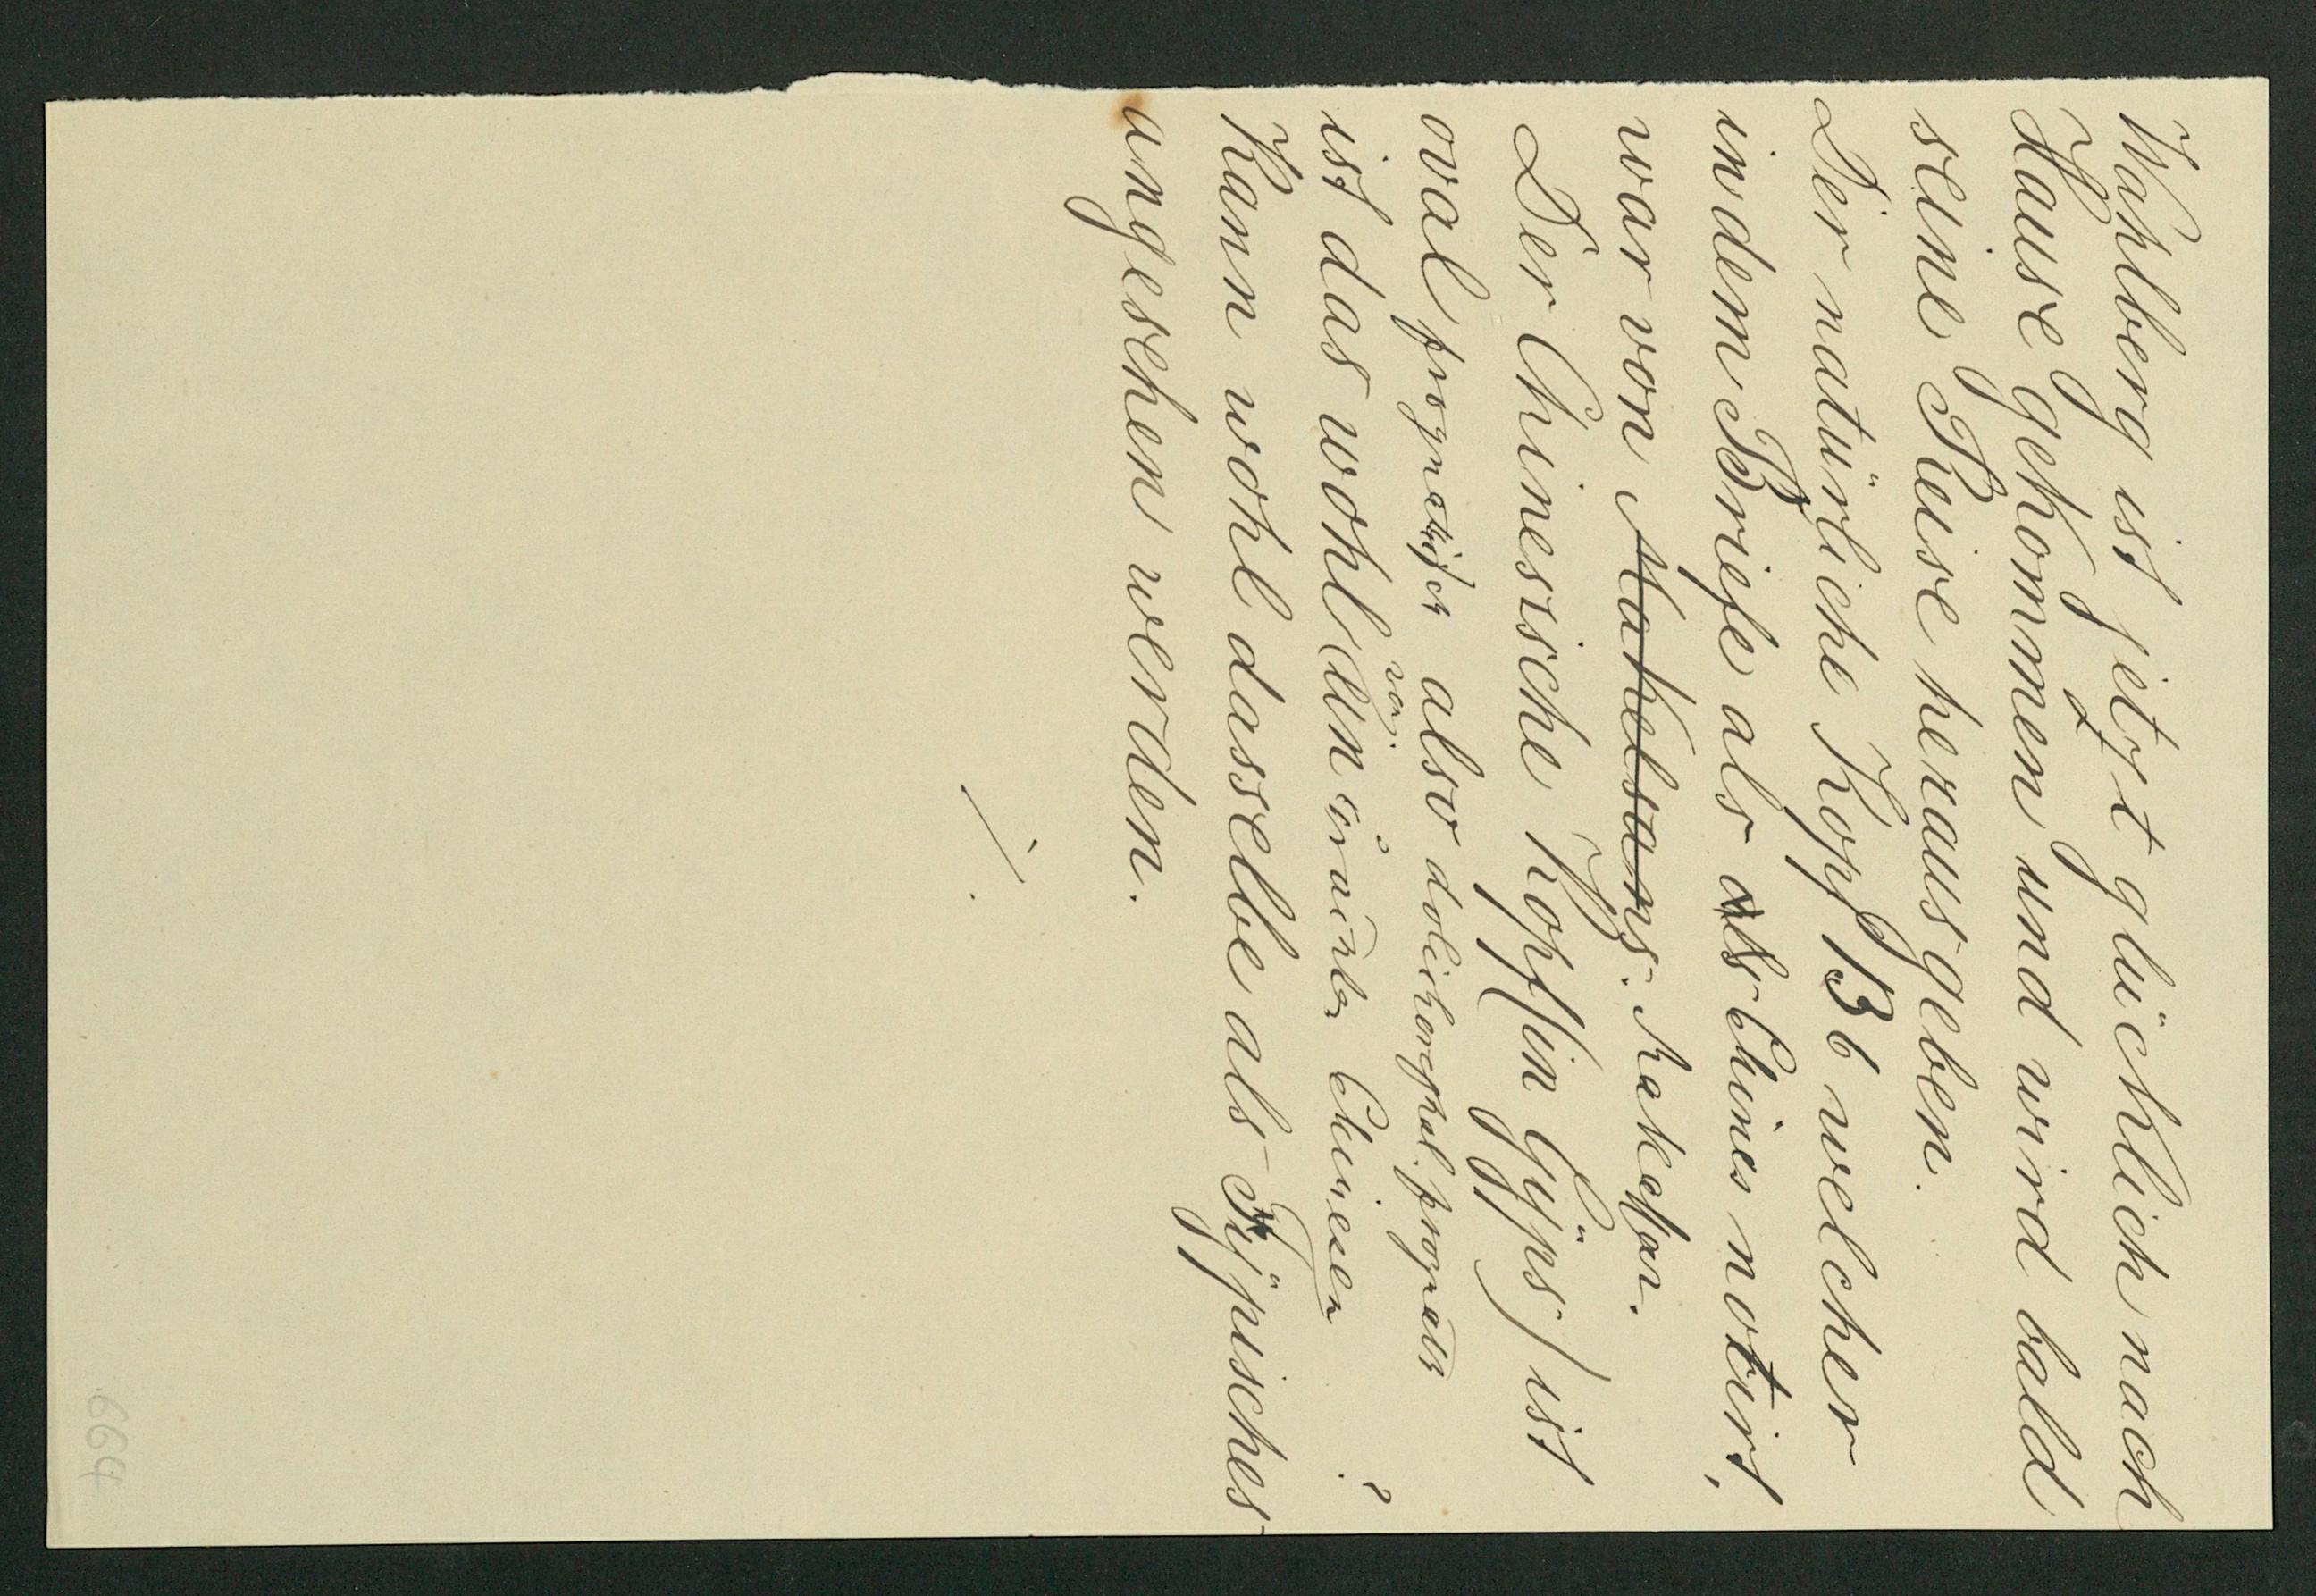 Wahlberg ist jetzt glücklich nach
Hause gekommen und wird bald
seine Reise herausgeben.
Der natürliche Kopf 136 welcher
in dem Briefe als als Chines notirt,
war von Makelsans. Makassar.
Der Chinesische Kopf (in Gÿps) ist
oval prognatisch also dolichocephal. prognath
ist das wohl ein von Chinesen ?
Kann wohl dasselbe als Tÿpisches
angesehen werden.
6664